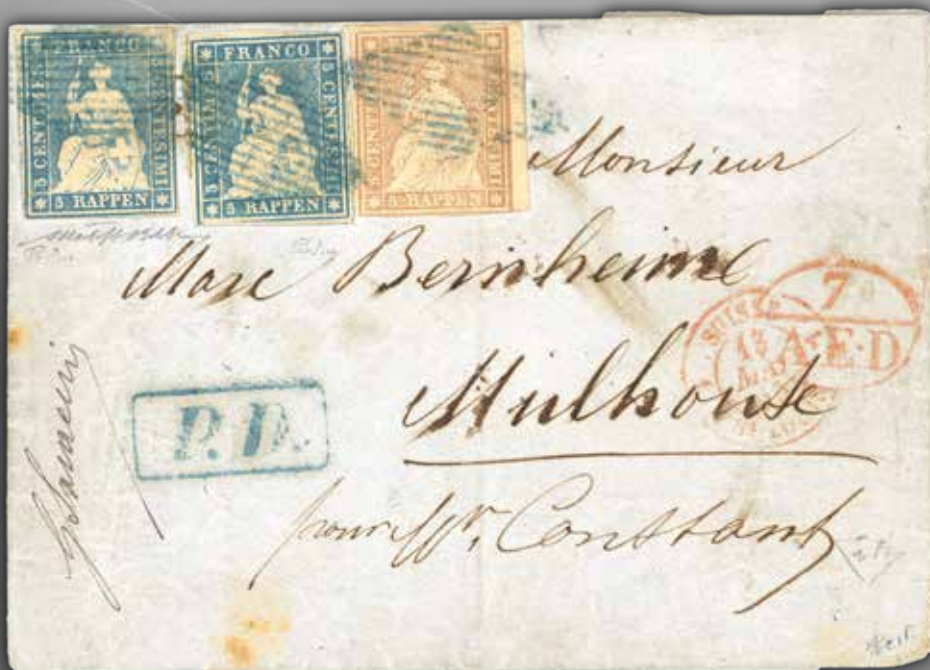 FRANCO
5 CENTIMES
5 CENTESIMI
5 RAPPEN
FRANCO
5 CENTIMES
5 CENTESIMI
5 RAPPEN
5 CENTIMES
5 RAPPEN
Monsieur
Marc Bernheime
7
SUISSE
13
A.E.D
Mulhouse
P.D.
pour Mr. Constant